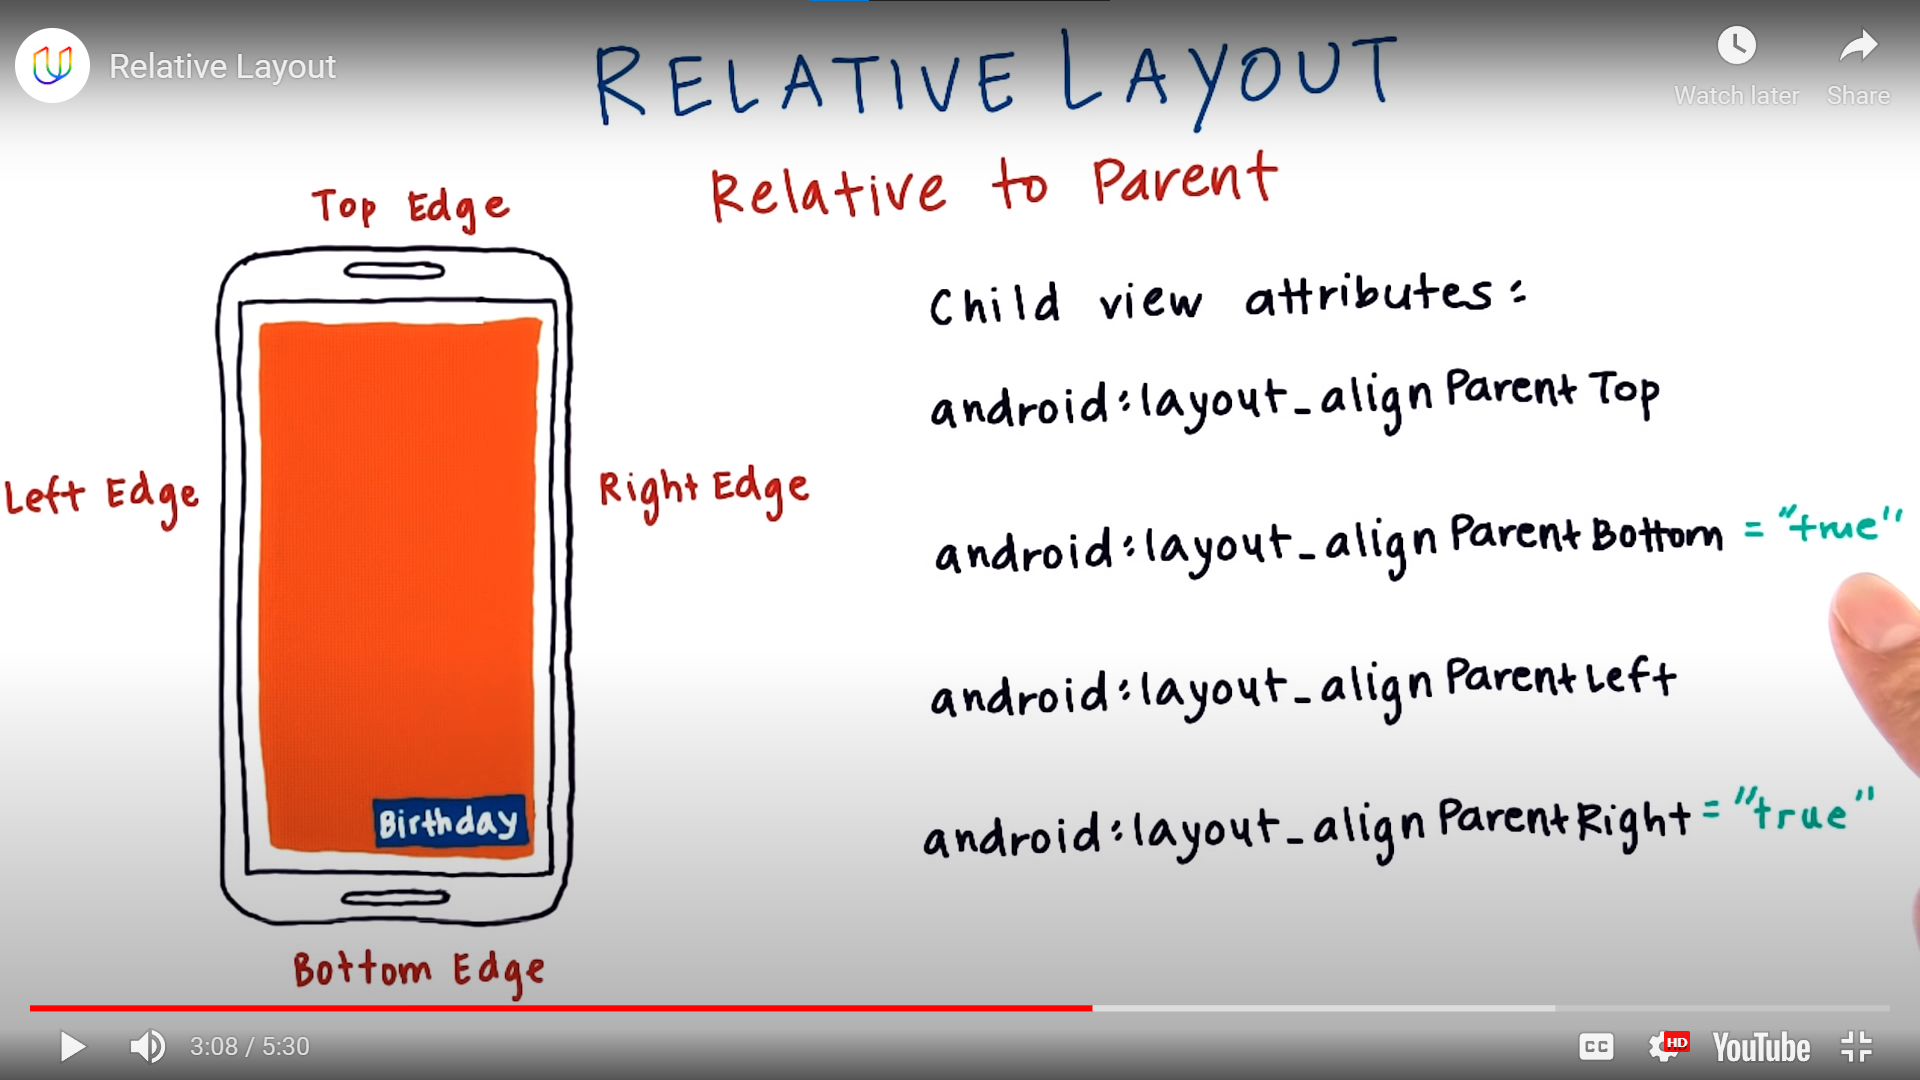 Relative Layout
RELATIVE LAYOUT
Watch later
Share
Relative to Parent
Top Edge
Left Edge
Right Edge
Birthday
Bottom Edge
Child view attributes:
android:layout_alignParentTop
android:layout_alignParentBottom = "true"
android:layout_alignParentLeft
android:layout_alignParentRight = "true"
3:08 / 5:30
CC
HD
YouTube